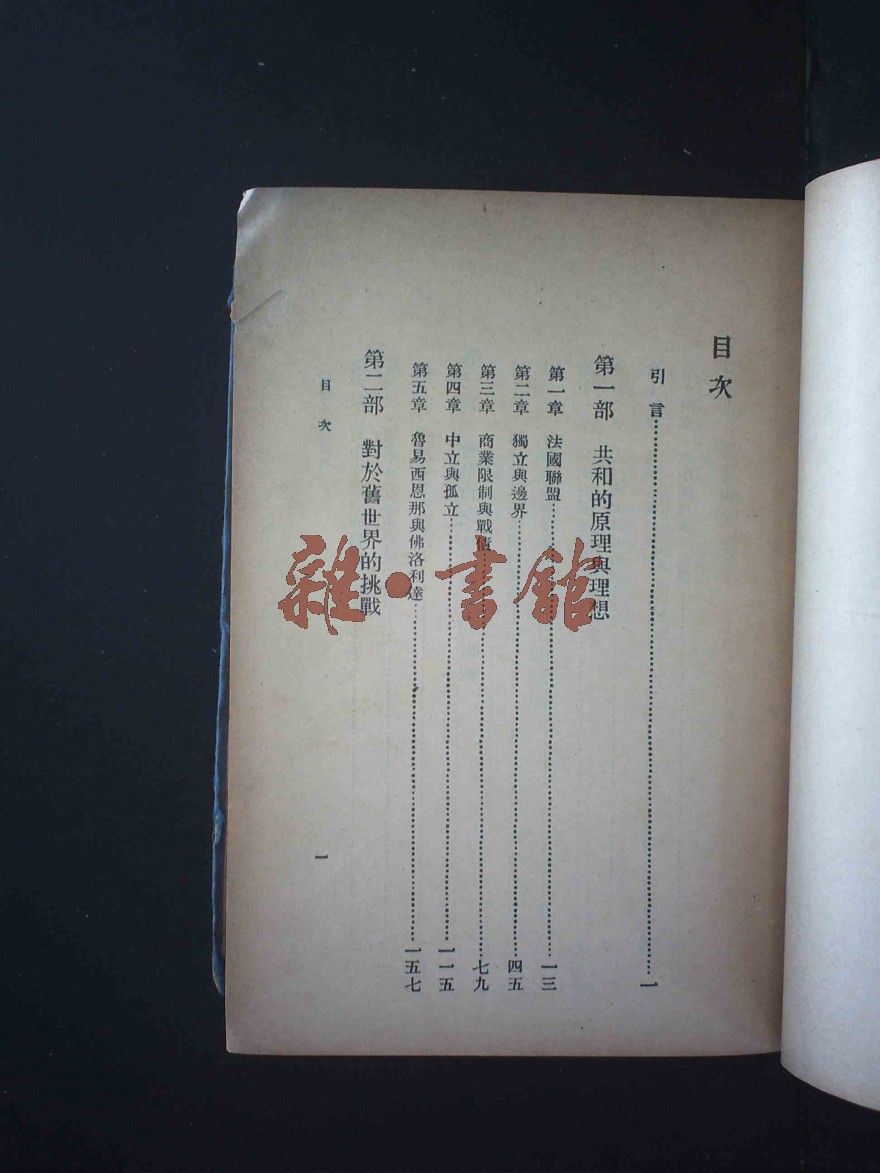 目次
引言⋯⋯⋯⋯一
第一部 共和的原理與理想
第一章 法國聯盟⋯⋯⋯⋯一三
第二章 獨立與邊界⋯⋯⋯⋯四五
第三章 商業限制與戰債⋯⋯⋯⋯七九
第四章 中立與孤立⋯⋯⋯⋯一一五
第五章 魯易西恩那與佛洛利達⋯⋯⋯⋯一五七
第二部 對於舊世界的挑戰
目次 一
雜·書館